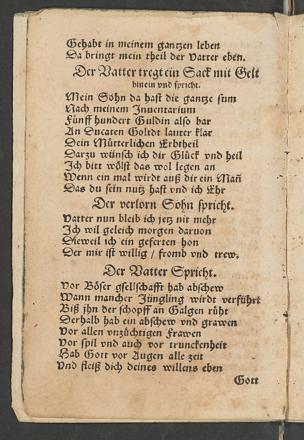 Gehabt in meinem gantzen leben
Da bringt mein theil der vatter eben.
Der Vatter tregt ein Sack mit Gelt
hinein vnd spricht.
Mein Sohn da hast die gantze sum
Nach meinem Inuentarium
Fünff hundert Guldin also bar
An Ducaten Goltdt lauter klar
Dein Mütterlichen Erbtheil
Darzu wünsch ich dir Glück vnd heil
Ich bitt wölst das wol legen an
Wenn ein mal wirdt auß dir ein Mañ
Das du sein nutz hast vnd ich Ehr
Der verlorn Sohn spricht.
Vatter nun bleib ich jetz nit mehr
Ich wil gleich morgen daruon
Dieweil ich ein geferten hon
Der mir ist willig / fromb vnd trew.
Der Vatter Spricht.
Vor Böser gsellschafft hab abschew
Wann mancher Jüngling wirdt verführt
Biß jhn der schopff an Galgen rührt
Derhalb hab ein abschew vnd grawen
Vor allen vnzüchtigen Frawen
Vor spil vnd auch vor trunckenheit
Hab Gott vor Augen alle zeit
Vnd fleiß dich deines willens eben
Gott